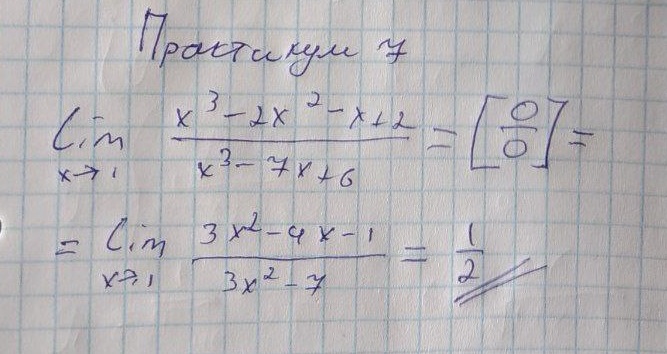 Практикум 7
lim x→1 (x³ - 2x² - x + 2)/(x³ - 7x + 6) = [0/0] =
= lim x→1 (3x² - 4x - 1)/(3x² - 7) = 1/2